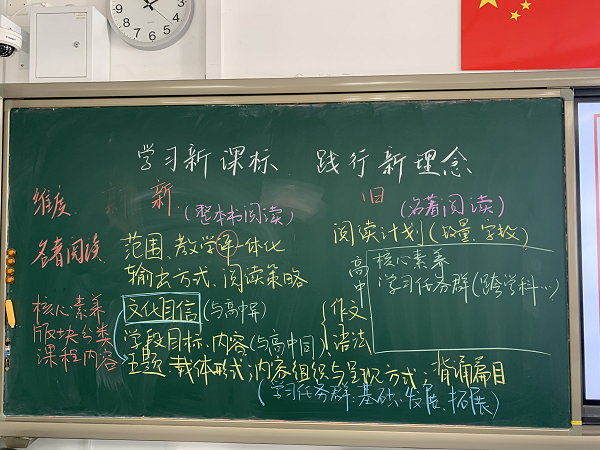 学习新课标 践行新理念
维度 新 旧
(整本书阅读) (名著阅读)
名著阅读 范围、教学评一体化 阅读计划(数量、字数)
输出方式、阅读策略
高中 核心素养
学习任务群(跨学科…)
核心素养 文化自信(与高中异)
版块分类 学段目标、内容(与高中同) 作文 语法
课程内容 主题、载体形式;内容组织与呈现方式、背诵篇目
(学习任务群:基础、发展、拓展)